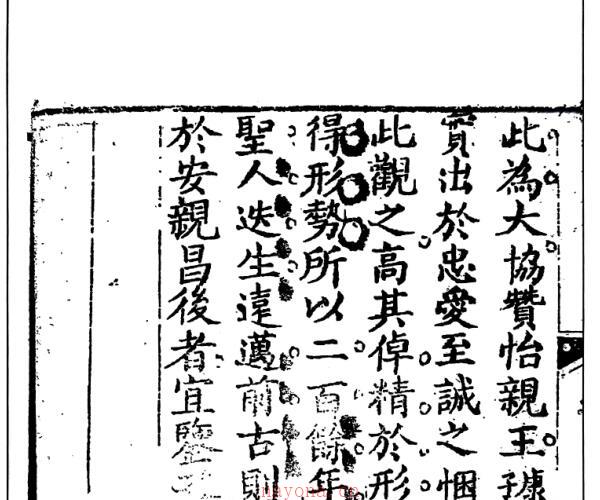 此為大協贊怡親王
實出於忠愛至誠之悃
此觀之高其倬精於形
得形勢所以二百餘年
聖人迭生遠邁前古則
於安親昌後者宜鑒